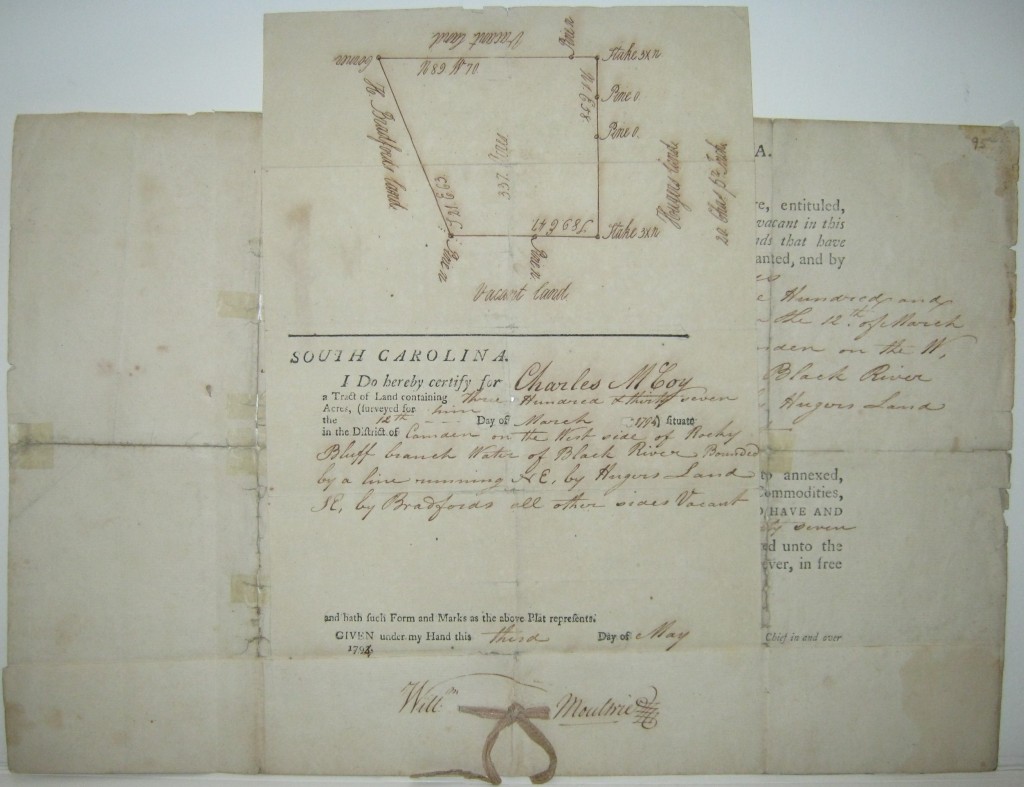 Vacant land
Pine x
Corner
N 89 W 70
Stake 3x n
Pine o.
Pine o.
N 1 E 58
H. Bradfords land
337 Acres
Hugers land
20 Chas pr Inch
S 21 E 63
S 89 E 47
Stake 3x n
Pine x
Pine x
Vacant land
SOUTH CAROLINA.
I Do hereby certify for Charles McCoy
a Tract of Land containing three Hundred & thirty seven
Acres, (surveyed for him
the 12th Day of March 1794) situate
in the District of Camden on the West side of Rocky
Bluff branch Water of Black River Bounded
by a line running NE, by Hugers Land
SE, by Bradfords all other sides Vacant
and hath such Form and Marks as the above Plat represents.
GIVEN under my Hand this third Day of May
1794
Willm Moultrie
95
A.
re, entituled,
vacant in this
nds that have
anted, and by
es
e Hundred and
the 12th of March
den on the W,
Black River
Hugers Land
to annexed,
Commodities,
O HAVE AND
ty seven
ed unto the
ver, in free
Chief in and over